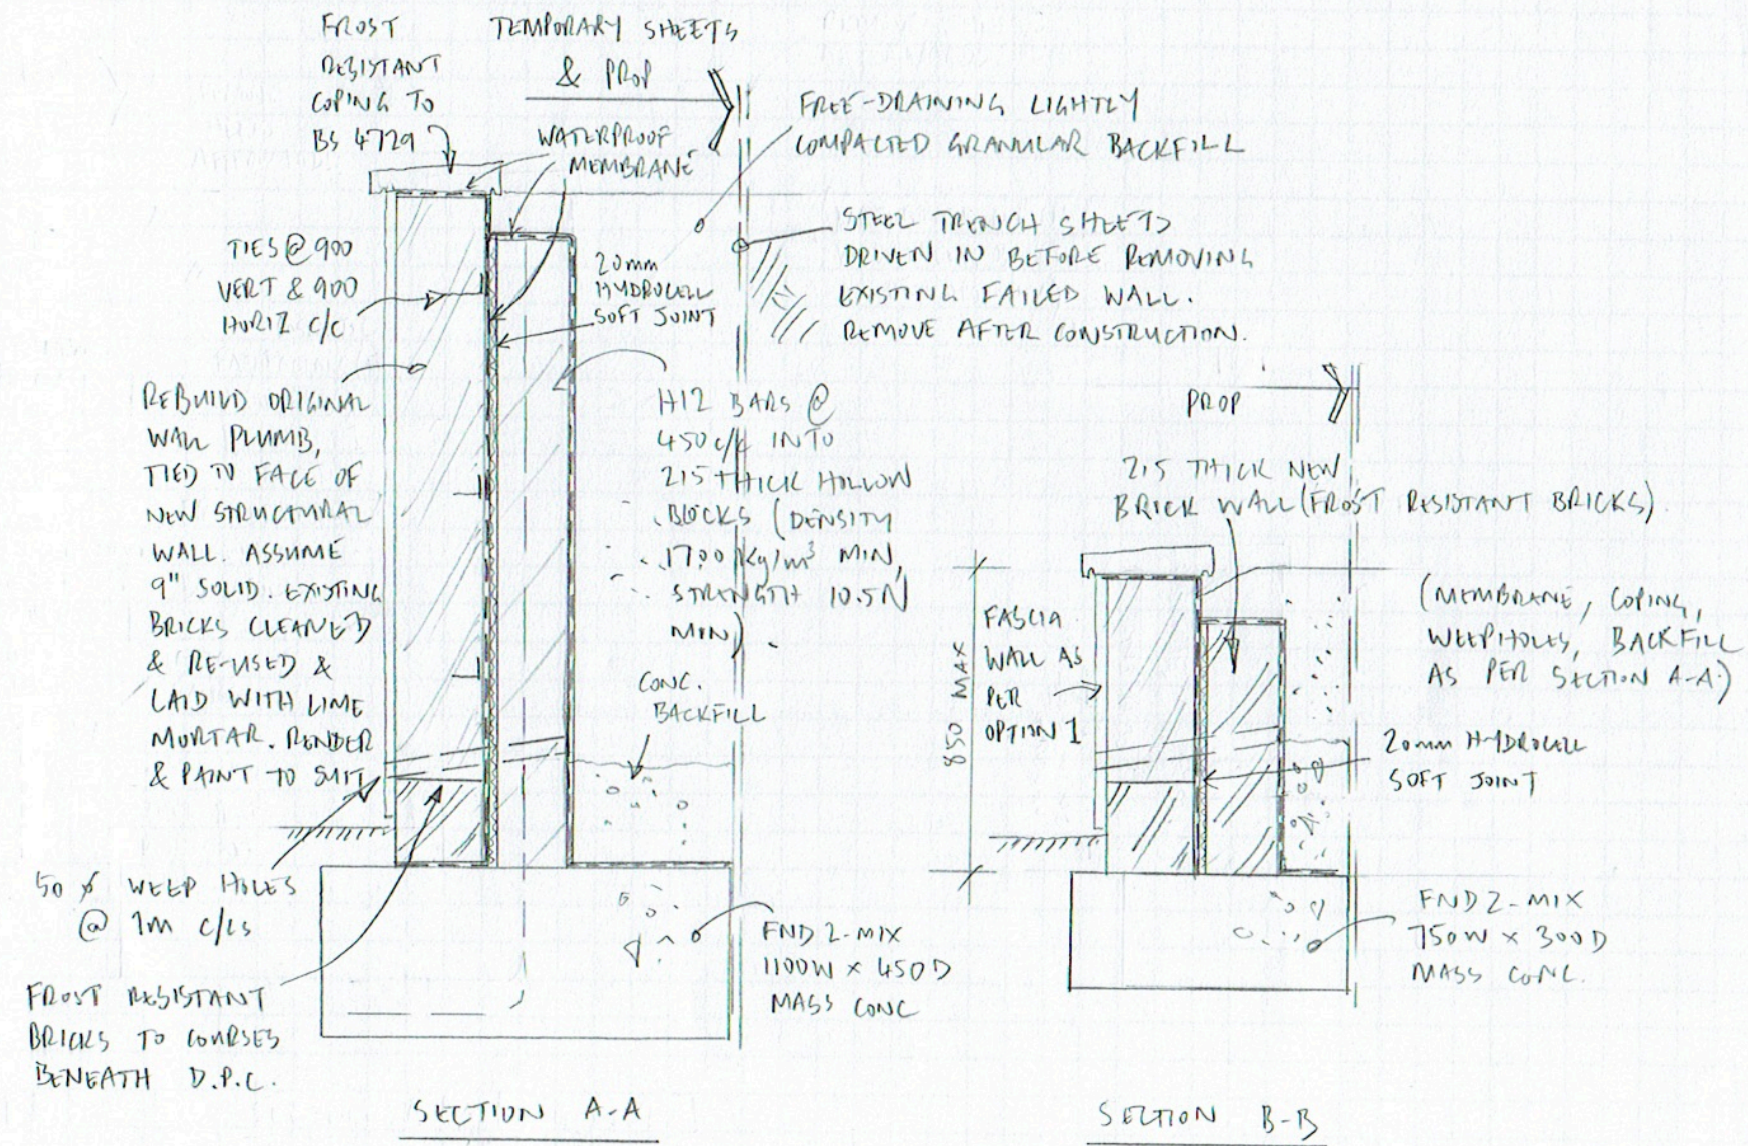 FROST
RESISTANT
COPING TO
BS 4729
TEMPORARY SHEETS
& PROP
WATERPROOF
MEMBRANE
FREE-DRAINING LIGHTLY
COMPACTED GRANULAR BACKFILL
STEEL TRENCH SHEETS
DRIVEN IN BEFORE REMOVING
EXISTING FAILED WALL.
REMOVE AFTER CONSTRUCTION.
TIES @ 900
VERT & 900
HORIZ C/C
20mm
HYDROCELL
SOFT JOINT
REBUILD ORIGINAL
WALL PLUMB,
TIED TO FACE OF
NEW STRUCTURAL
WALL. ASSUME
9" SOLID. EXISTING
BRICKS CLEANED
& RE-USED &
LAID WITH LIME
MORTAR. RENDER
& PAINT TO SUIT
H12 BARS @
450 c/c INTO
215 THICK HOLLOW
BLOCKS (DENSITY
1700 kg/m³ MIN,
STRENGTH 10.5N
MIN).
CONC.
BACKFILL
50 ϕ WEEP HOLES
@ 1m c/cs
FROST RESISTANT
BRICKS TO COURSES
BENEATH D.P.C.
FND2-MIX
1100W x 450D
MASS CONC
SECTION A-A
PROP
215 THICK NEW
BRICK WALL (FROST RESISTANT BRICKS)
850 MAX
FASCIA
WALL AS
PER
OPTION 1
(MEMBRANE, COPING,
WEEPHOLES, BACKFILL
AS PER SECTION A-A.)
20mm HYDROCELL
SOFT JOINT
FND2-MIX
750W x 300D
MASS CONC.
SECTION B-B